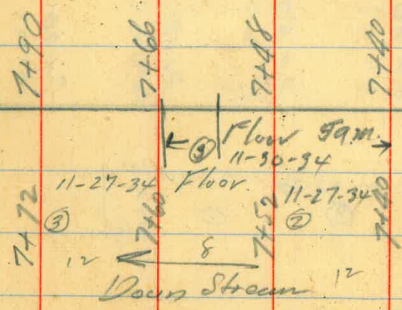 7+90 7+66 7+48 7+40
③ Floor 9am.
11-30-34
11-27-34 Floor. 11-27-34
7+72 ③ 7+60 7+52 ② 7+40
12 8 12
Down Stream